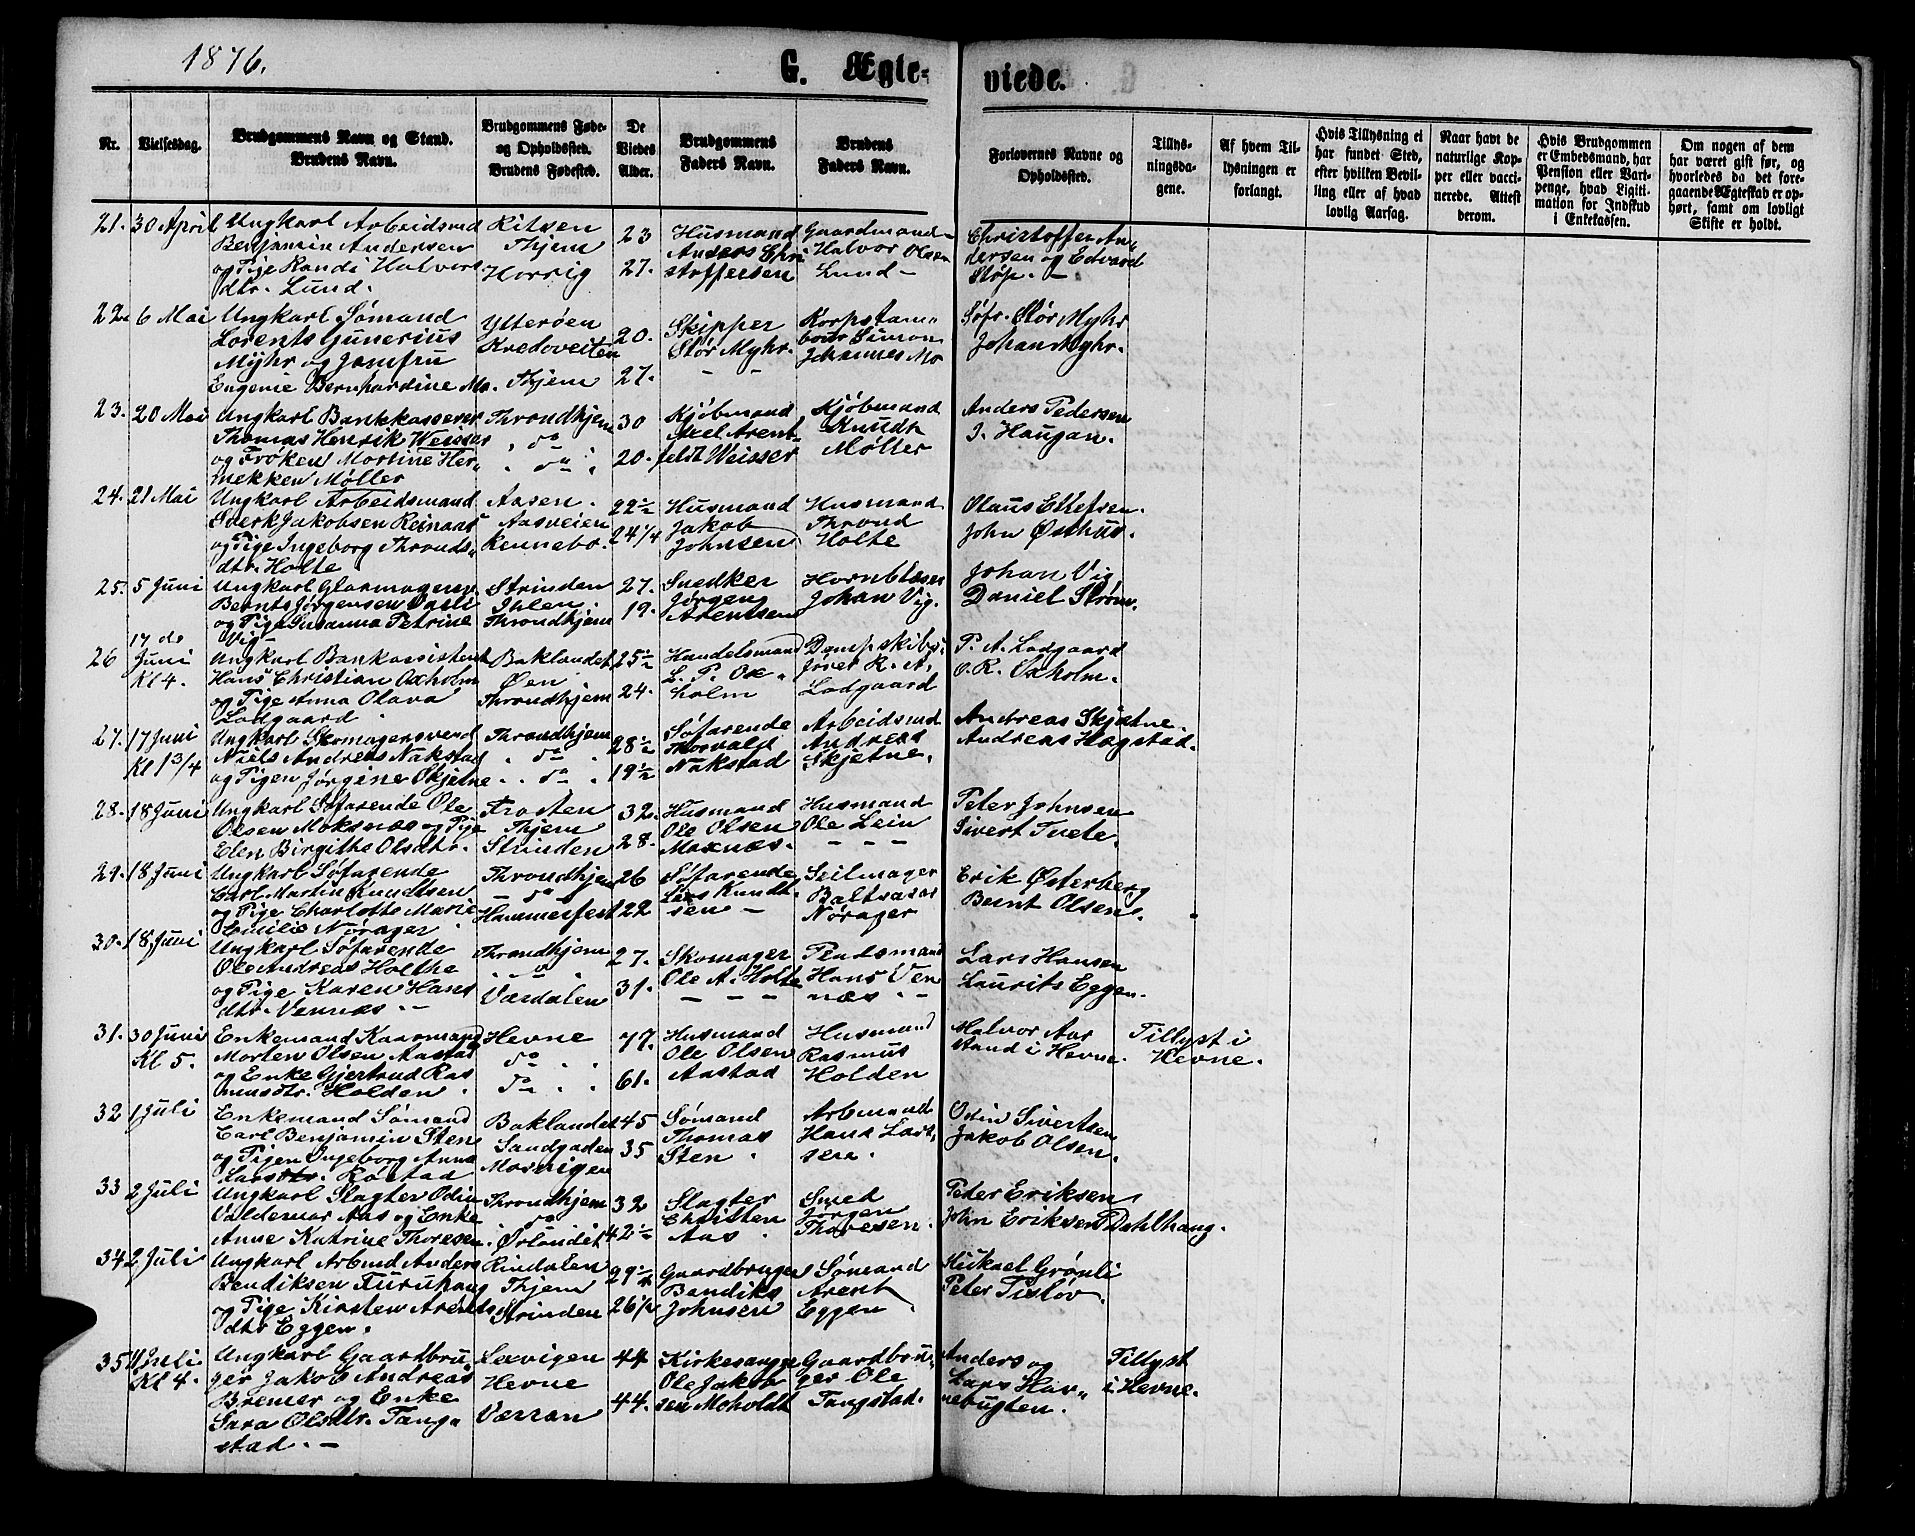 1876.
G. Ægte-
viede.
Nr.
Vielsesdag.
Brudgommens Navn og Stand.
Brudens Navn.
Brudgommens Føde-
og Opholdssted.
Brudens Fødested.
De
Viedes
Alder.
Brudgommens
Faders Navn.
Brudens
Faders Navn.
Forlovernes Navne og
Opholdssted.
Tillys-
ningsda-
gene.
Af hvem Til-
lysningen er
forlangt.
Hvis Tillysning ei
har fundet Sted,
efter hvilken Bevil-
ling eller af hvad
lovlig Aarsag.
Naar havt de
naturlige Kop-
per eller vacci-
nerede. Attest
derom.
Hvis Brudgommen
er Embedsmand, har
Pension eller Vart-
penge, hvad Ligiti-
mation for Indskud
i Enkekassen.
Om nogen af dem
har været gift før, og
hvorledes da det fore-
gaaende Ægteskab er op-
hørt, samt om lovligt
Skifte er holdt.
21. 30 April Ungkarl Arbeidsmd Ritsen 23 Husmand Gaardmand- Christoffer An-
Benjamin Andersen Thjem Anders Chri Halvor Olsen dersen og Edvard
og Pige Randi Halvors Horrig 27. stoffersen Lund - Støp. -
dtr. Lund.
22. 6 Mai Ungkarl Sømand Ytterøen 20. Skipper Korpstam- Søfr. Stör Myhr
Lorents Gunerius Kredsveiten Stör Myhr. bour Simon Johan Myhr.
Myhr og Jomfru 27. - - Johannes Mo
Eugenie Bernhardine Mo. Thjem
23. 20 Mai Ungkarl Bankkasserer Throndhjem 30 Kjøbmand Kjøbmand Anders Pedersen
Thomas Henrik Weisser do Axel Arent- Knudt J. Haugan.
og Frøken Martine Her- do 20. feldt Weisser Møller
mekken Møller
24. 21 Mai Ungkarl Arbeidsmand Aasen. 22½ Husmand Husmand Olaus Ellefsen.
Sverk Jakobsen Reinaas Aasveien Jakob Thrond John Østhus.
og Pige Ingeborg Thronds- Rennebo. 24¼ Johnsen Holte
dtr. Holte
25. 5 Juni Ungkarl Glarmagersv. Strinden 27. Snedker Hornblæser Johan Vig,
Bernts Jørgensen Ihlen. 19. Jørgen Johan Vig. Daniel Strøm.
og Pige Susanna Petrine Throndhjem Arentsen
Vig-
26 17 de Juni Kl 4. Ungkarl Bankassistent Baklandet 25½ Handelsmand Dampskibs- P. A. Lodgaard
Hans Christian Oxholm Øen L. P. Ox- fører R. A. O. R. Oxholm.
og Pige Anna Olava Throndhjem 24. holm Lodgaard
Lodgaard.
27. 17 Juni Ungkarl Skomagersvend Throndhjem 28½ Søfarende Arbeidsmd Andreas Skjetne.
Kl 1 3/4 Niels Andreas Nakstad do Thorvald Andreas Andreas Hagstad.
og Pigen Jørgine Skjetne do 19½ Nakstad Skjetne.
28. 18 Juni Ungkarl Søfarende Ole Frosten 32. Husmand Husmand Peter Johnsen
Olsen Moksnæs og Pige Thjem Ole Olsen Ole Lein Sivert Tvete.
Elen Birgithe Olsdtr. Strinden 28. Moxnæs. - - -
29. 18 Juni Ungkarl Søfarende Throndhjem 26 Søfarende Seilmager Erik Østerberg
Carl Martin Knudtsen do Lars Knudt- Baltsasar Bernt Olsen.
og Pige Charlotte Marie Hammerfest 22 sen - Nørager
Emilie Nørager.
30. 18 Juni Ungkarl Søfarende Throndhjem 27. Skomager Pladsmand Lars Hansen
Ole Andreas Holthe do Ole A. Holte Hans Ven Laurits Eggen.
og Pige Karen Hans Værdalen 31. - - - næs. -
dtr. Vennæs. -
31. 30 Juni Enkemand Kaarmand Hevne 77. Husmand Husmand Halvor Aar Tillyst i
Kl 5. Morten Olsen Aastad do Ole Olsen Rasmus stand i Hevne. Hevne.
og Enke Gjertrud Ras do 61. Aastad Holden
musdtr. Holden.
32 1 Juli Enkemand Sømand Baklandet 45 Sømand Arbmand Odin Sivertsen
Carl Benjamin Sten Sandgaden 35 Thomas Hans Lar- Jakob Olsen.
og Pigen Ingeborg Anna Morvigen Sten. sen.
Larsdtr. Røstad
33 2 Juli Ungkarl Slagter Odin Throndhjem 32 Slagter Smed Peter Eriksen
Valdemar Aas og Enke do Christen Jørgen John Eriksen Dahlhaug.
Anne Katrine Thoresen. Ørlandet 42½ Aas. Thoresen.
34 2 Juli Ungkarl Arbmd Anders Rindalen 29¼ Gaardbruger Sømand Mickael Grønli
Bendiksen Furuhaug Thjem Bendiks Arent Peter Tisløv.
og Pige Kirsten Arents Strinden 26½ Johnsen Eggen.
dtr Eggen.
35 11 Juli Ungkarl Gaardbru- Leevigen 44 Kirkesanger Gaardbru- Anders og Tillyst
Kl 4. ger Jakob Andreas Hevne Ole Jakob ger Ole Lars Hav- i Hevne.
Bremer og Enke Værran 44. sen Moholdt Tangstad. nebugten.
Sara Olsdtr. Tang-
stad. -